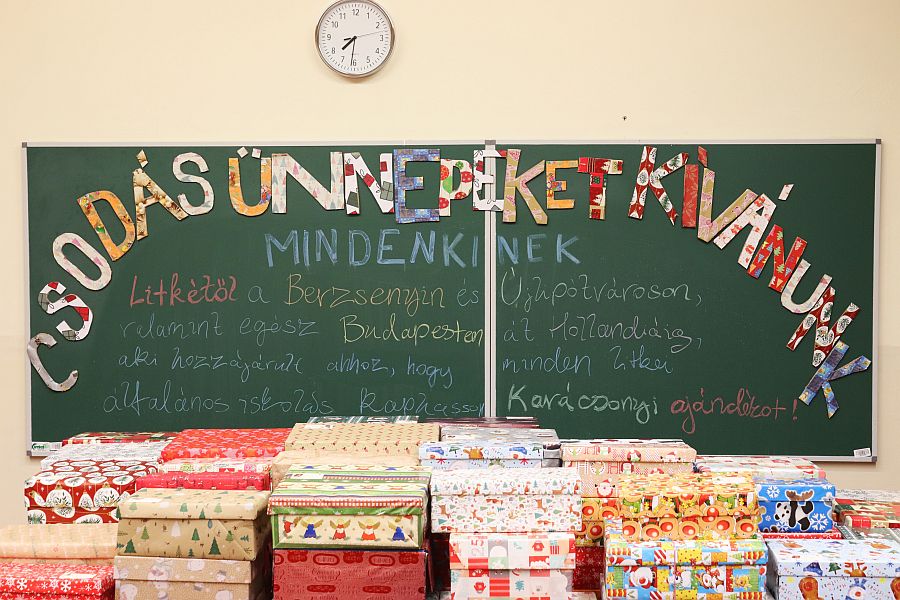 CSODÁS ÜNNEPEKET KÍVÁNUNK
MINDENKINEK
Litkétől a Berzsenyin és Újlipótvároson,
valamint egész Budapesten át Hollandiáig,
aki hozzájárult ahhoz, hogy minden litkei
általános iskolás kaphasson Karácsonyi ajándékot!
12 1 2 3 4 5 6 7 8 9 10 11